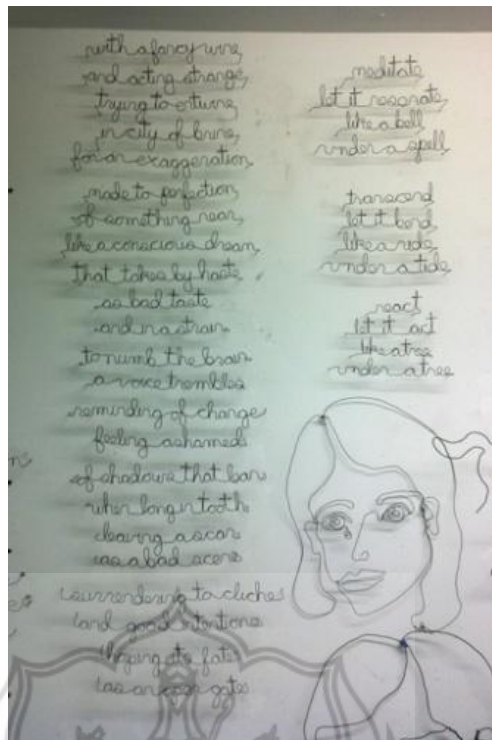 with a fancy wine,
and acting strange,
trying to entwine,
in city of brine,
for an exaggeration,
made to perfection,
of something near,
like a conscious dream,
that takes by haste
as bad taste
and in a strain
to numb the brain
a voice trembles
reminding of change
feeling ashamed
of shadows that ban
when long in tooth
leaving a scar
as a bad scene
surrendering to cliches
and good intentions
shaping its fate
as an iron gate
meditate
let it resonate,
like a bell
under a spell,
transcend
let it bend,
like a ride,
under a tide,
react
let it act
like a tree
under a tree